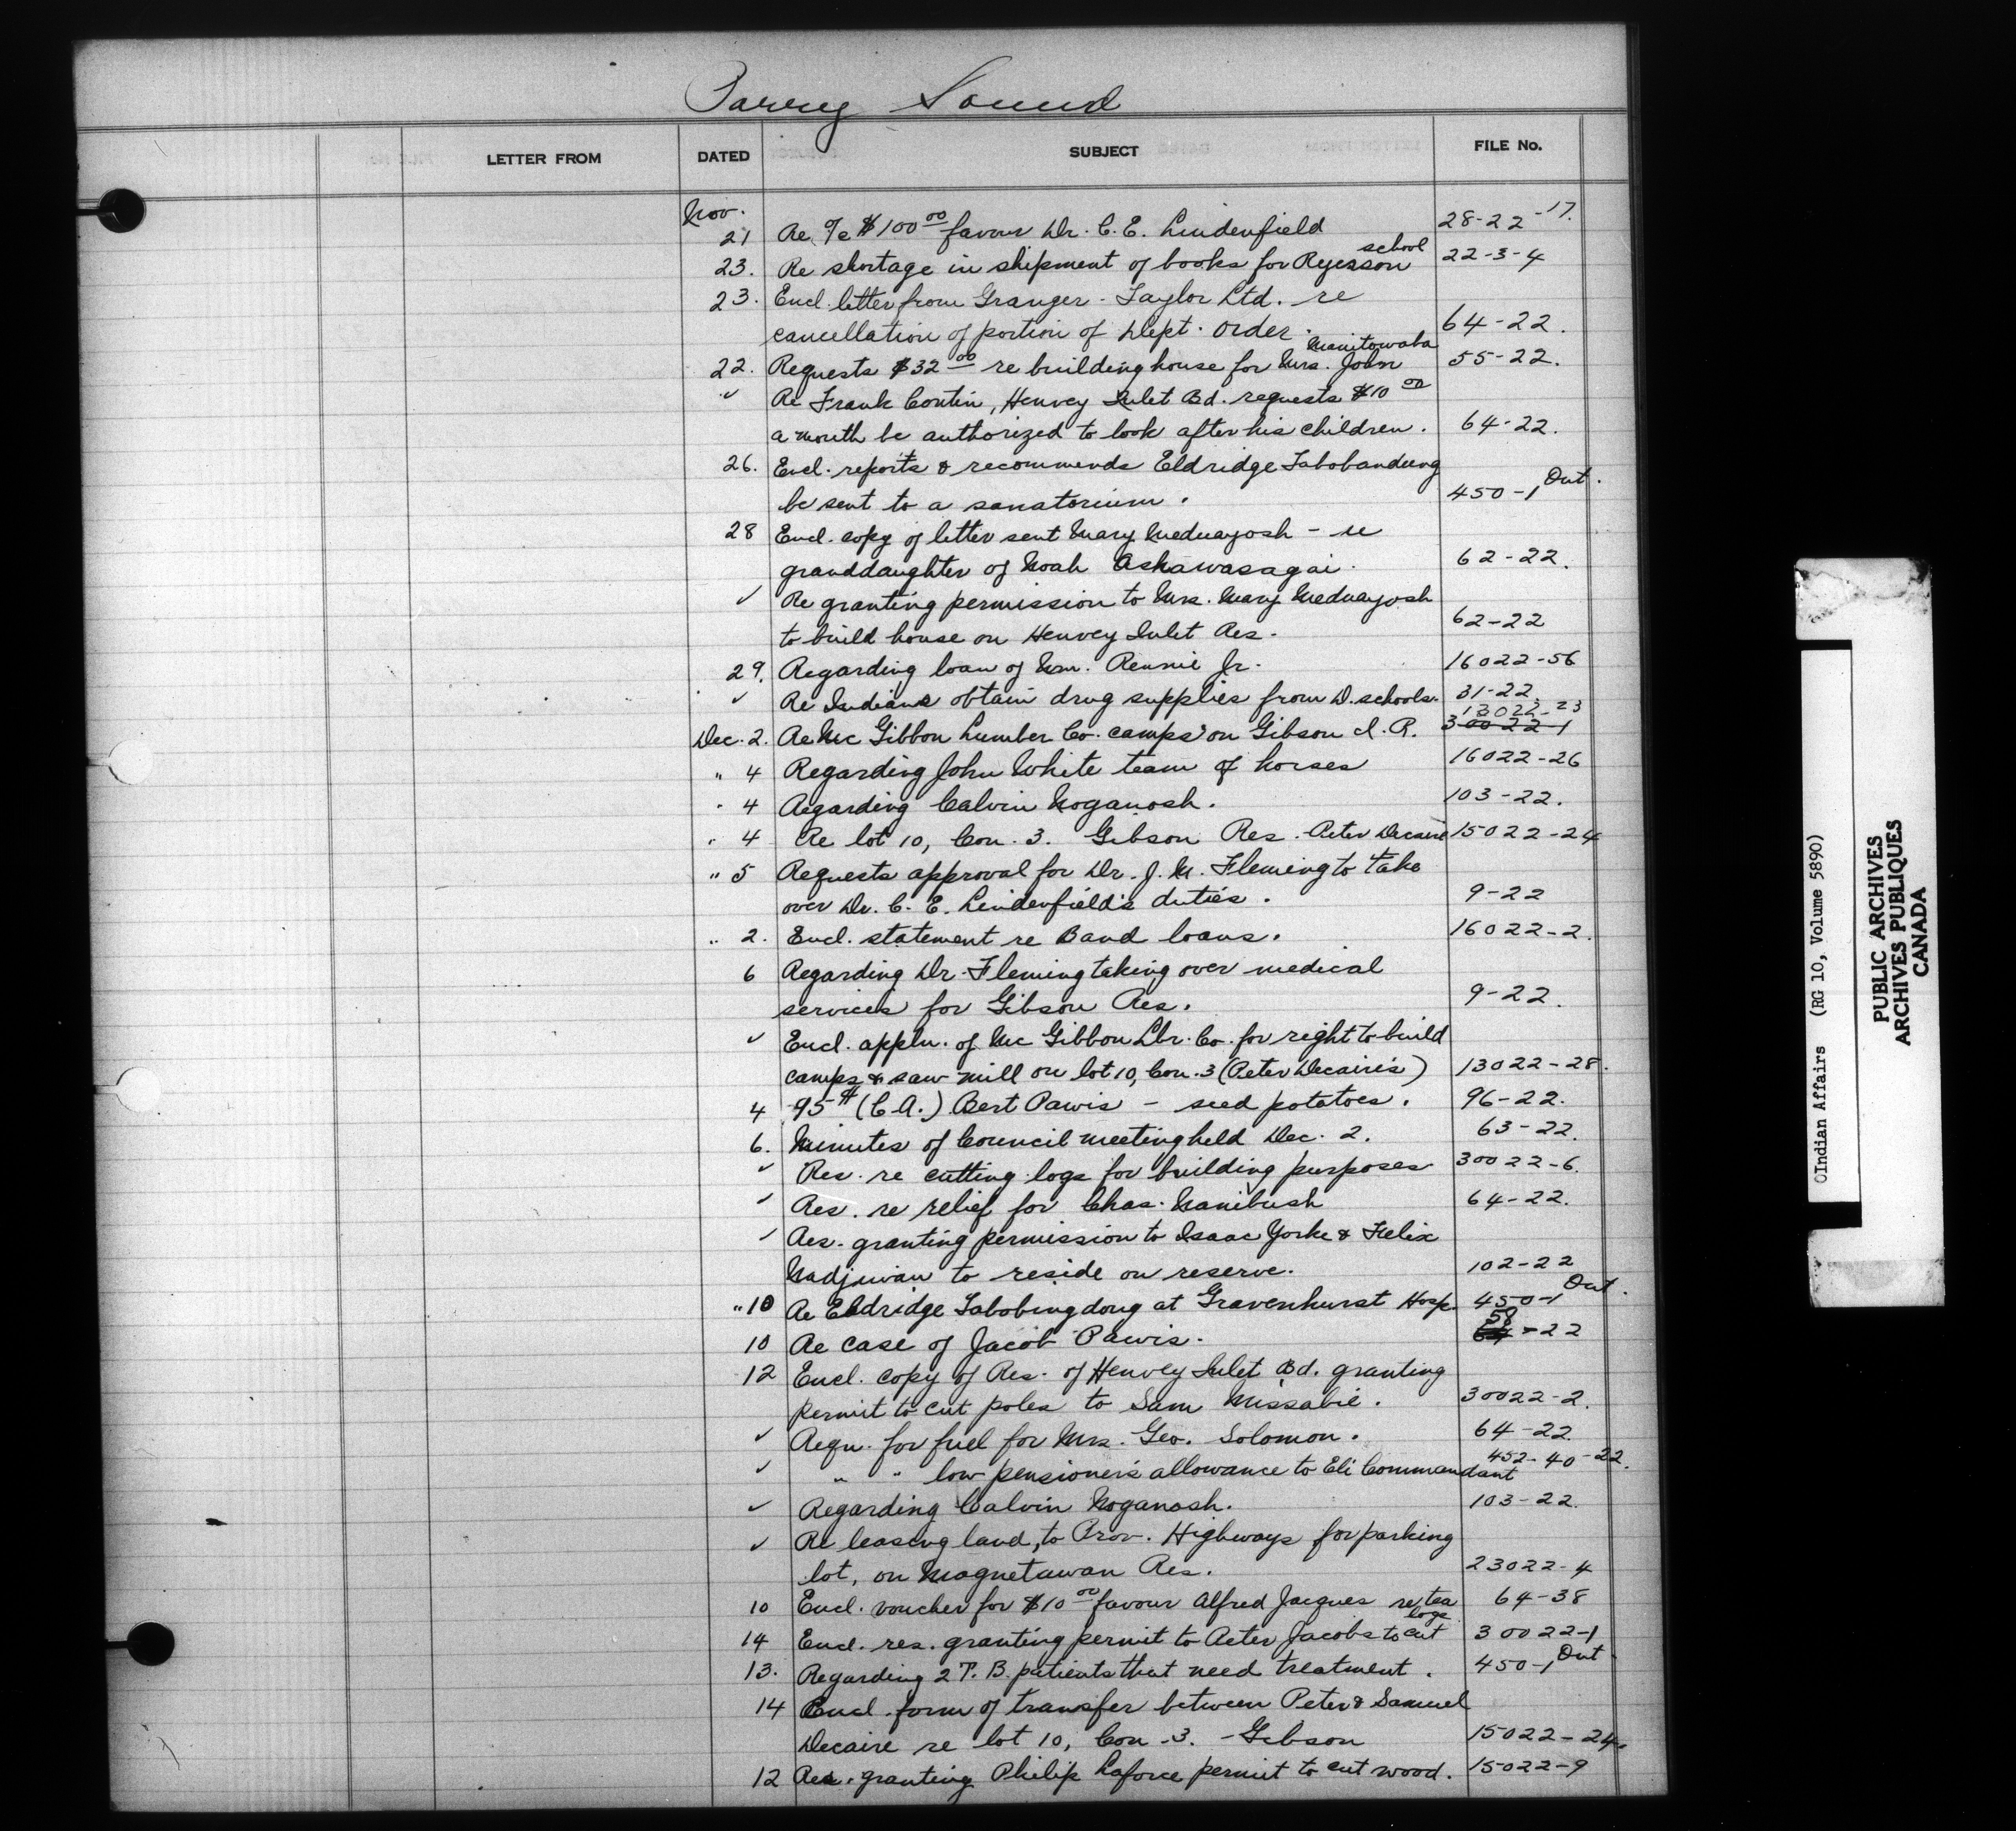 Parry Sound
LETTER FROM DATED SUBJECT FILE No.
Nov. 21 Re a/c $100 00 favour Dr. C. E. Lindenfield 28-22-17.
23. Re shortage in shipment of books for Ryerson school 22-3-4
23. Encl. letter from Granger-Taylor Ltd. re
cancellation of portion of Dept. order. 64-22.
22. Requests $32 00 re building house for Mrs. John Manitowaba 55-22.
✓ Re Frank Contin, Henvey Inlet Bd. requests $10 00
a month be authorized to look after his children. 64-22.
26. Encl. reports & recommends Eldridge Tabobandung
be sent to a sanatorium. 450-1 Ont.
28 Encl. copy of letter sent Mary Meduayosh - re
granddaughter of Noah Ashawasagai. 62-22.
✓ Re granting permission to Mrs. Mary Meduayosh
to build house on Henvey Inlet Res. 62-22
29. Regarding loan of Wm. Rennie Jr. 16022-56
✓ Re Indians obtain drug supplies from D. schools. 31-22.
Dec. 2. Re McGibbon Lumber Co. camps on Gibson I. R. 13022-23 30022-1
" 4 Regarding John White team of horses 16022-26
" 4 Regarding Calvin Noganosh. 103-22.
" 4 Re lot 10, Con. 3. Gibson Res. Peter Decaire 15022-24
" 5 Requests approval for Dr. J. M. Fleming to take
over Dr. C. E. Lindenfield's duties. 9-22
" 2. Encl. statement re Band loans. 16022-2.
6 Regarding Dr. Fleming taking over medical
services for Gibson Res. 9-22.
✓ Encl. appln. of McGibbon Lbr. Co. for right to build
camps & saw mill on lot 10, Con. 3 (Peter Decaire's) 13022-28.
4 95# (C A.) Bert Pawis - seed potatoes. 96-22.
6. Minutes of Council meeting held Dec. 2. 63-22.
✓ Res. re cutting logs for building purposes 30022-6.
✓ Res. re relief for Chas. Nanibush 64-22.
✓ Res. granting permission to Isaac Yorke & Felix
Nadjiwan to reside on reserve. 102-22
" 10 Re Eldridge Tabobungdong at Gravenhurst Hosp. 450-1 Ont.
10 Re case of Jacob Pawis. 58-22
12 Encl. copy of Res. of Henvey Inlet Bd. granting
permit to cut poles to Sam Missabie. 30022-2.
✓ Requ. for fuel for Mrs. Geo. Solomon. 64-22
✓ " " low pensioner's allowance to Eli Commandant 452-40-22.
✓ Regarding Calvin Noganosh. 103-22.
✓ Re leasing land, to Prov. Highways for parking
lot, on Magnetawan Res. 23022-4
10 Encl. voucher for $10 00 favour Alfred Jacques re tea 64-38
14 Encl. res. granting permit to Peter Jacobs to cut logs 30022-1
13. Regarding 2 T. B. patients that need treatment. 450-1 Ont.
14 Encl. form of transfer between Peter & Samuel
Decaire re lot 10, Con. 3. - Gibson 15022-24.
12 Res. granting Philip Laforce permit to cut wood. 15022-9
©Indian Affairs (RG 10, Volume 5890)
PUBLIC ARCHIVES
ARCHIVES PUBLIQUES
CANADA